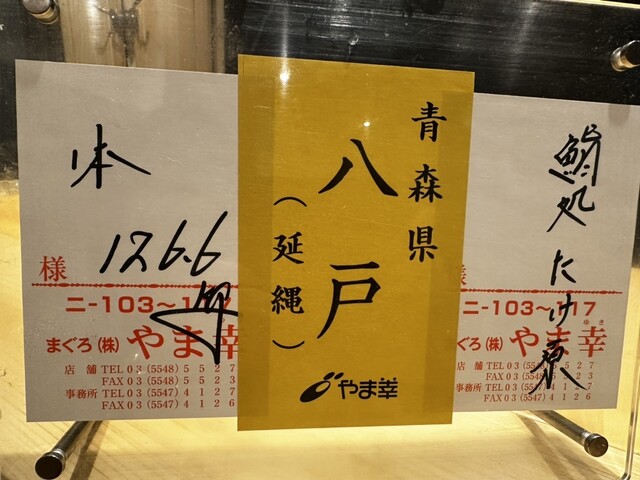 本
126.6
様
ニ-103〜117
まぐろ(株)やま幸
店 舗 TEL 03 (5548) 5 5 2 7
FAX 03 (5548) 5 5 2 3
事務所 TEL 03 (5547) 4 1 2 7
FAX 03 (5547) 4 1 2 6
青森県
八戸
(延縄)
やま幸
鮨処
たけ
ニ-103〜117
まぐろ(株)やま幸
ゆき
店 舗 TEL 03 (5548) 5 5 2 7
FAX 03 (5548) 5 5 2 3
事務所 TEL 03 (5547) 4 1 2 7
FAX 03 (5547) 4 1 2 6